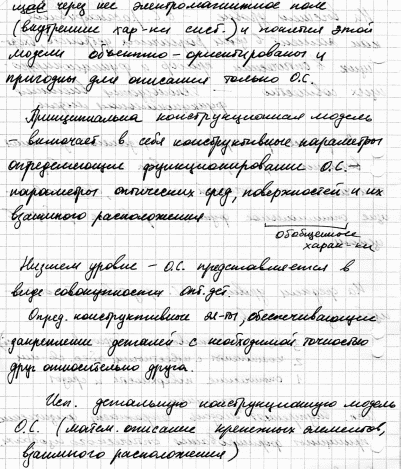 щей через нее электромагнитное поле
(внутренние хар-ки сист.) и понятия этой
модели объектно-ориентированы и
пригодны для описания только О.С.
Принципиальна конструкционная модель
- включает в себя конструктивные параметры
определяющие функционирование О.С. -
параметры оптических сред, поверхностей и их
взаимного расположения
обобщенные
харак-ки
Низшем уровне - О.С. представляется в
виде совокупности опт. дет.
Опред. конструктивные эл-ты, обеспечивающие
закрепление деталей с необходимой точностью
друг относительно друга.
Исп. детальную конструкционную модель
О.С. (матем. описание крепежных элементов,
взаимного расположения)